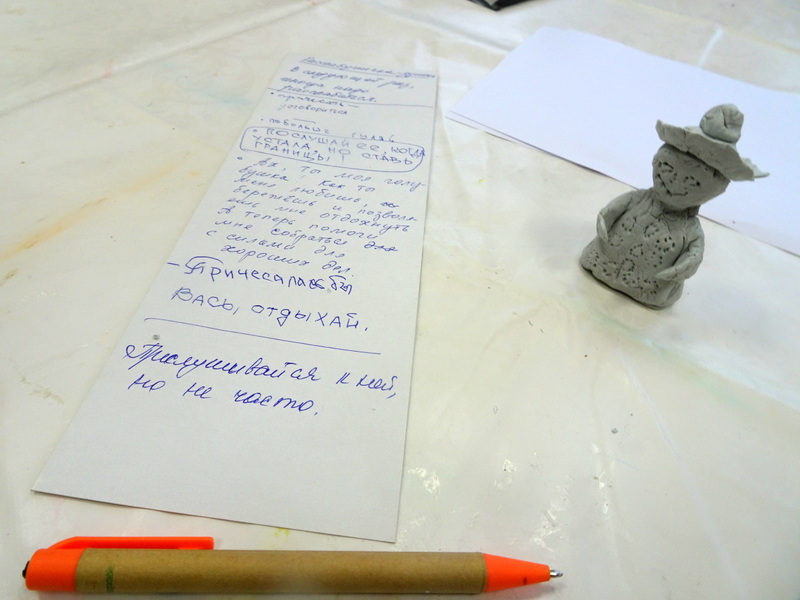 в следующий раз,
• причмок —
договориться
• ПОСЛУШАЙ ЕЕ, КОГДА
УСТАЛА, НО СТАВЬ
ГРАНИЦЫ!
• Ах, ты моя голу-
бушка, как ты
меня любишь,
бережёшь и позволя-
ешь мне отдохнуть
А теперь помоги
мне собраться
с силами для
хороших дел.
– Причесалась бы
Вась, отдыхай.
Прислушивайся к ней,
но не часто.